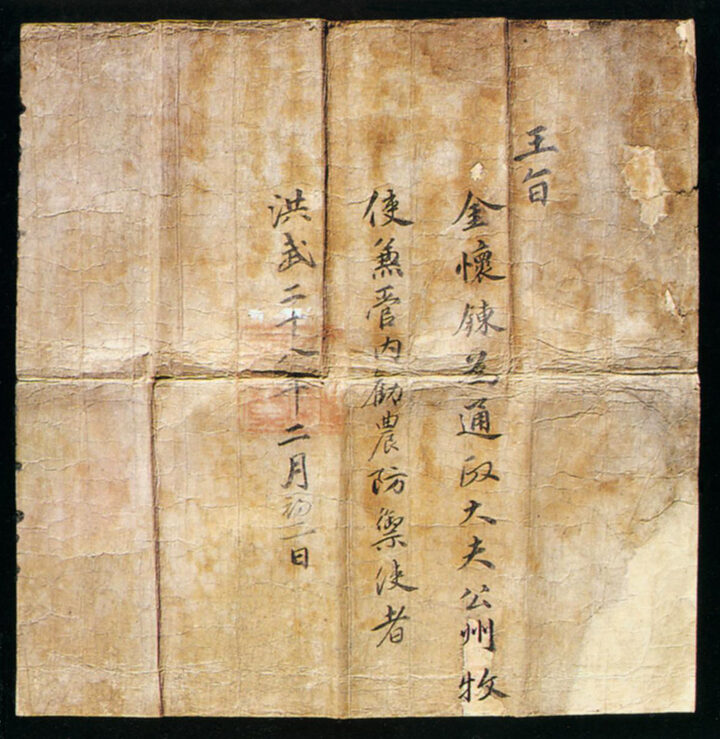 王旨
金懷鍊爲通政大夫公州牧
使兼管內勸農防禦使者
洪武二十八年十二月初二日